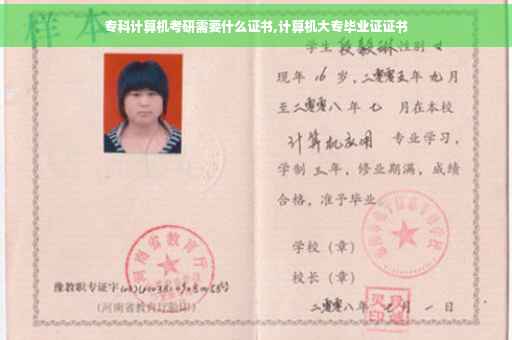 专科计算机考研需要什么证书,计算机大专毕业证证书
样本
学生 段毅琳 性别 女
现年 16 岁,二零零五年 九 月
至二零零八年 七 月在本校
计算机应用 专业学习,
学制 三 年,修业期满,成绩
合格,准予毕业
学校(章)
校长(章)
二零零八年 月 一 日
河南省教育厅
豫教职专证字
(河南省教育厅验印)